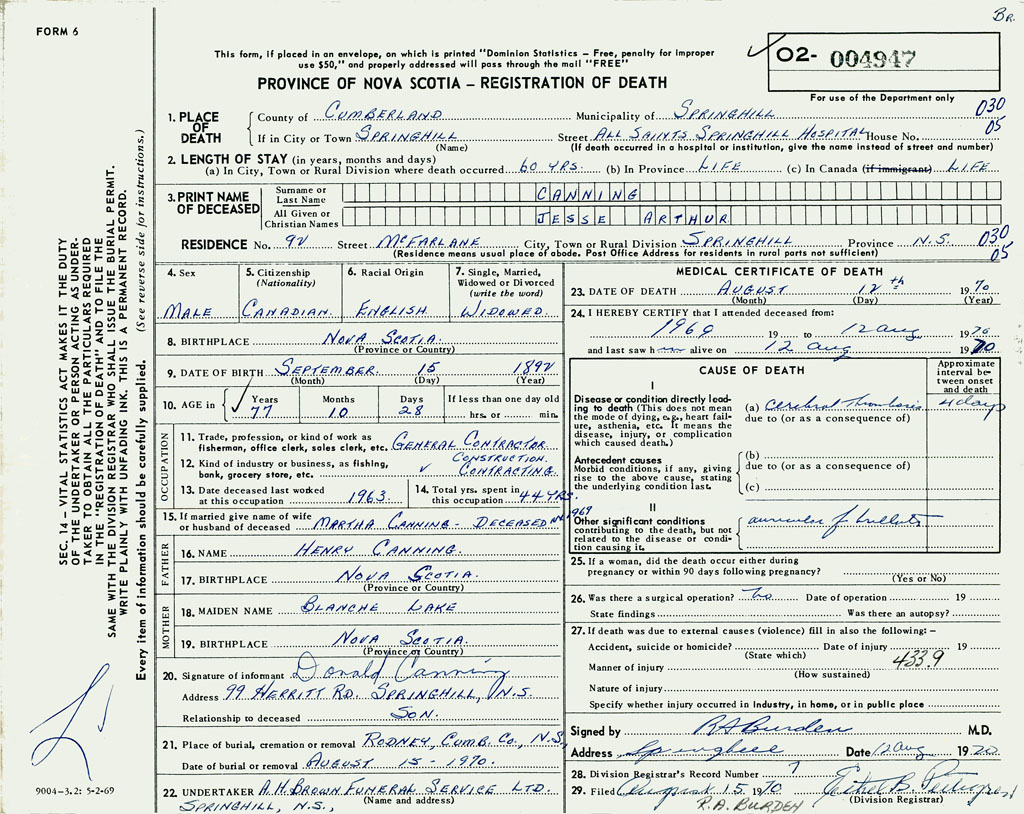 Br.
FORM 6
This form, if placed in an envelope, on which is printed "Dominion Statistics – Free, penalty for improper
use $50," and properly addressed will pass through the mail "FREE"
02- 004947
PROVINCE OF NOVA SCOTIA – REGISTRATION OF DEATH
For use of the Department only
1. PLACE OF DEATH
County of CUMBERLAND Municipality of SPRINGHILL 030
If in City or Town SPRINGHILL Street ALL SAINTS SPRINGHILL HOSPITAL House No. 05
(Name) (If death occurred in a hospital or institution, give the name instead of street and number)
2. LENGTH OF STAY (in years, months and days)
(a) In City, Town or Rural Division where death occurred 60 YRS. (b) In Province LIFE (c) In Canada (if immigrant) LIFE
3. PRINT NAME OF DECEASED
Surname or Last Name CANNING
All Given or Christian Names JESSE ARTHUR
RESIDENCE No. 92 Street McFARLANE City, Town or Rural Division SPRINGHILL Province N.S. 030
(Residence means usual place of abode. Post Office Address for residents in rural parts not sufficient) 05
4. Sex
MALE
5. Citizenship
(Nationality)
CANADIAN.
6. Racial Origin
ENGLISH
7. Single, Married,
Widowed or Divorced
(write the word)
WIDOWED
8. BIRTHPLACE NOVA SCOTIA.
(Province or Country)
9. DATE OF BIRTH SEPTEMBER 15 1892
(Month) (Day) (Year)
10. AGE in
Years Months Days If less than one day old
77 10 28 hrs. or min.
OCCUPATION
11. Trade, profession, or kind of work as
fisherman, office clerk, sales clerk, etc. GENERAL CONTRACTOR
12. Kind of industry or business, as fishing,
bank, grocery store, etc. CONSTRUCTION CONTRACTING.
13. Date deceased last worked
at this occupation 1963
14. Total yrs. spent in
this occupation 44 YRS.
15. If married give name of wife
or husband of deceased MARTHA CANNING - DECEASED 1969
FATHER
16. NAME HENRY CANNING.
17. BIRTHPLACE NOVA SCOTIA.
(Province or Country)
MOTHER
18. MAIDEN NAME BLANCHE LAKE
19. BIRTHPLACE NOVA SCOTIA.
(Province or Country)
20. Signature of informant Donald Canning
Address 99 HERRITT RD. SPRINGHILL, N.S.
Relationship to deceased SON.
21. Place of burial, cremation or removal RODNEY, CUMB. CO., N.S.
Date of burial or removal AUGUST 15 - 1970.
22. UNDERTAKER A.H. BROWN FUNERAL SERVICE LTD.
(Name and address)
SPRINGHILL, N.S.,
MEDICAL CERTIFICATE OF DEATH
23. DATE OF DEATH AUGUST 12th 1970
(Month) (Day) (Year)
24. I HEREBY CERTIFY that I attended deceased from:
1969 19 to 12 Aug 1970
and last saw h alive on 12 Aug 1970
CAUSE OF DEATH
Approximate
interval be-
tween onset
and death
I
Disease or condition directly lead-
ing to death (This does not mean
the mode of dying, e.g., heart fail-
ure, asthenia, etc. It means the
disease, injury, or complication
which caused death.)
(a) Cerebral Thrombosis 4 days
due to (or as a consequence of)
Antecedent causes
Morbid conditions, if any, giving
rise to the above cause, stating
the underlying condition last.
(b)
due to (or as a consequence of)
(c)
II
Other significant conditions
contributing to the death, but not
related to the disease or condi-
tion causing it.
auricular
25. If a woman, did the death occur either during
pregnancy or within 90 days following pregnancy?
(Yes or No)
26. Was there a surgical operation? No Date of operation 19
State findings Was there an autopsy?
27. If death was due to external causes (violence) fill in also the following: –
Accident, suicide or homicide? Date of injury 19
(State which) 433.9
Manner of injury
(How sustained)
Nature of injury
Specify whether injury occurred in Industry, in home, or in public place
Signed by RA Burden M.D.
Address Springhill Date 12 Aug 1970
28. Division Registrar's Record Number 7
29. Filed August 15 1970 Ethel B.
(Division Registrar)
R.A. BURDEN
SEC. 14 – VITAL STATISTICS ACT MAKES IT THE DUTY
OF THE UNDERTAKER OR PERSON ACTING AS UNDER-
TAKER TO OBTAIN ALL THE PARTICULARS REQUIRED
IN THE "REGISTRATION OF DEATH" AND TO FILE THE
SAME WITH THE DIVISION REGISTRAR WHO SHALL ISSUE THE BURIAL PERMIT.
WRITE PLAINLY WITH UNFADING INK. THIS IS A PERMANENT RECORD.
Every item of information should be carefully supplied. (See reverse side for instructions.)
9004-3.2: 5-2-69